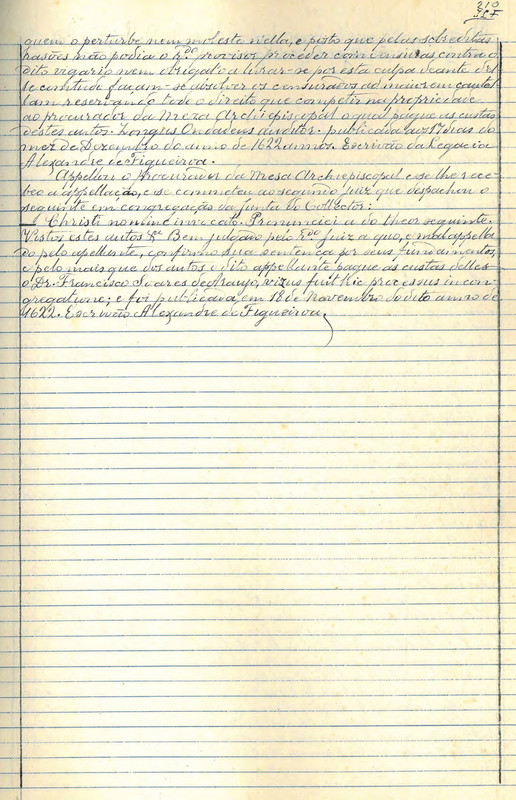 210
327
quem o perturbe nem moleste n'ella, e posto que pelas sobreditas
rasões não podia o R.do provisor proceder com censuras contra o
dito vigario nem obrigal-o a livrar-se por esta culpa deante d'el-
le comtudo façam-se absolver os censurados ad maiorem cautel-
lam reservando todo o direito que competir na propriedade
ao procurador da Meza Archiepiscopal o qual pague as custas
destes autos. auditor. publicada aos 17 dias do
mez de Dezembro do anno de 1622 annos. Escrivão da Legacia
Alexandre de Figueiroa.
Appellou o Procurador da Mesa Archiepiscopal e se lhe rece-
beo a appellação, e se commeteu ao segundo juiz que despachou o
seguinte em congregação da junta do Collector:
Christi nomine invocato. Pronunciei a do theor seguinte.
Vistos estes autos &.a Bem julgado pelo R.do juiz a quo, e mal appella-
do pelo apellante, confirmo sua sentença por seus fundamentos,
e pelo mais que dos autos, e dito appellante pague as custas delles
o Dr. Francisco Soares de Araujo, vizus fuit hic processus in con-
gregatione; e foi publicada, em 18 de Novembro do dito anno de
1622. Escrivão Alexandre de Figueiroa,